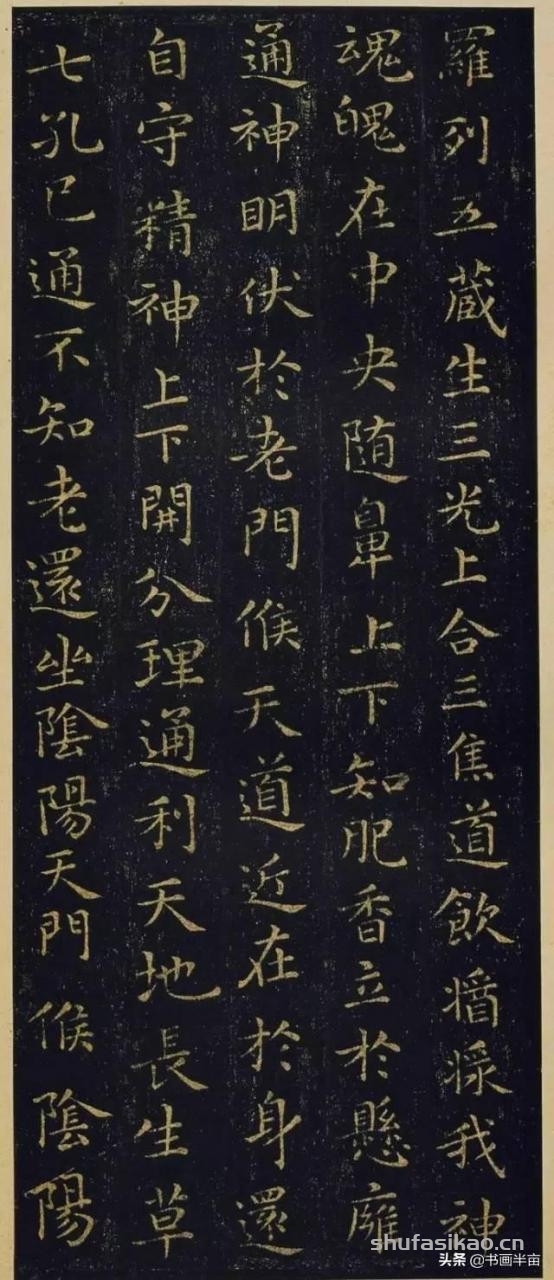 羅列五蔵生三光上合三焦道飲醬漿我神
魂魄在中央随鼻上下知肥香立於懸廱
通神明伏於老門候天道近在於身還
自守精神上下開分理通利天地長生草
七孔已通不知老還坐陰陽天門候陰陽
shufasikao.cn
头条 @书画半亩